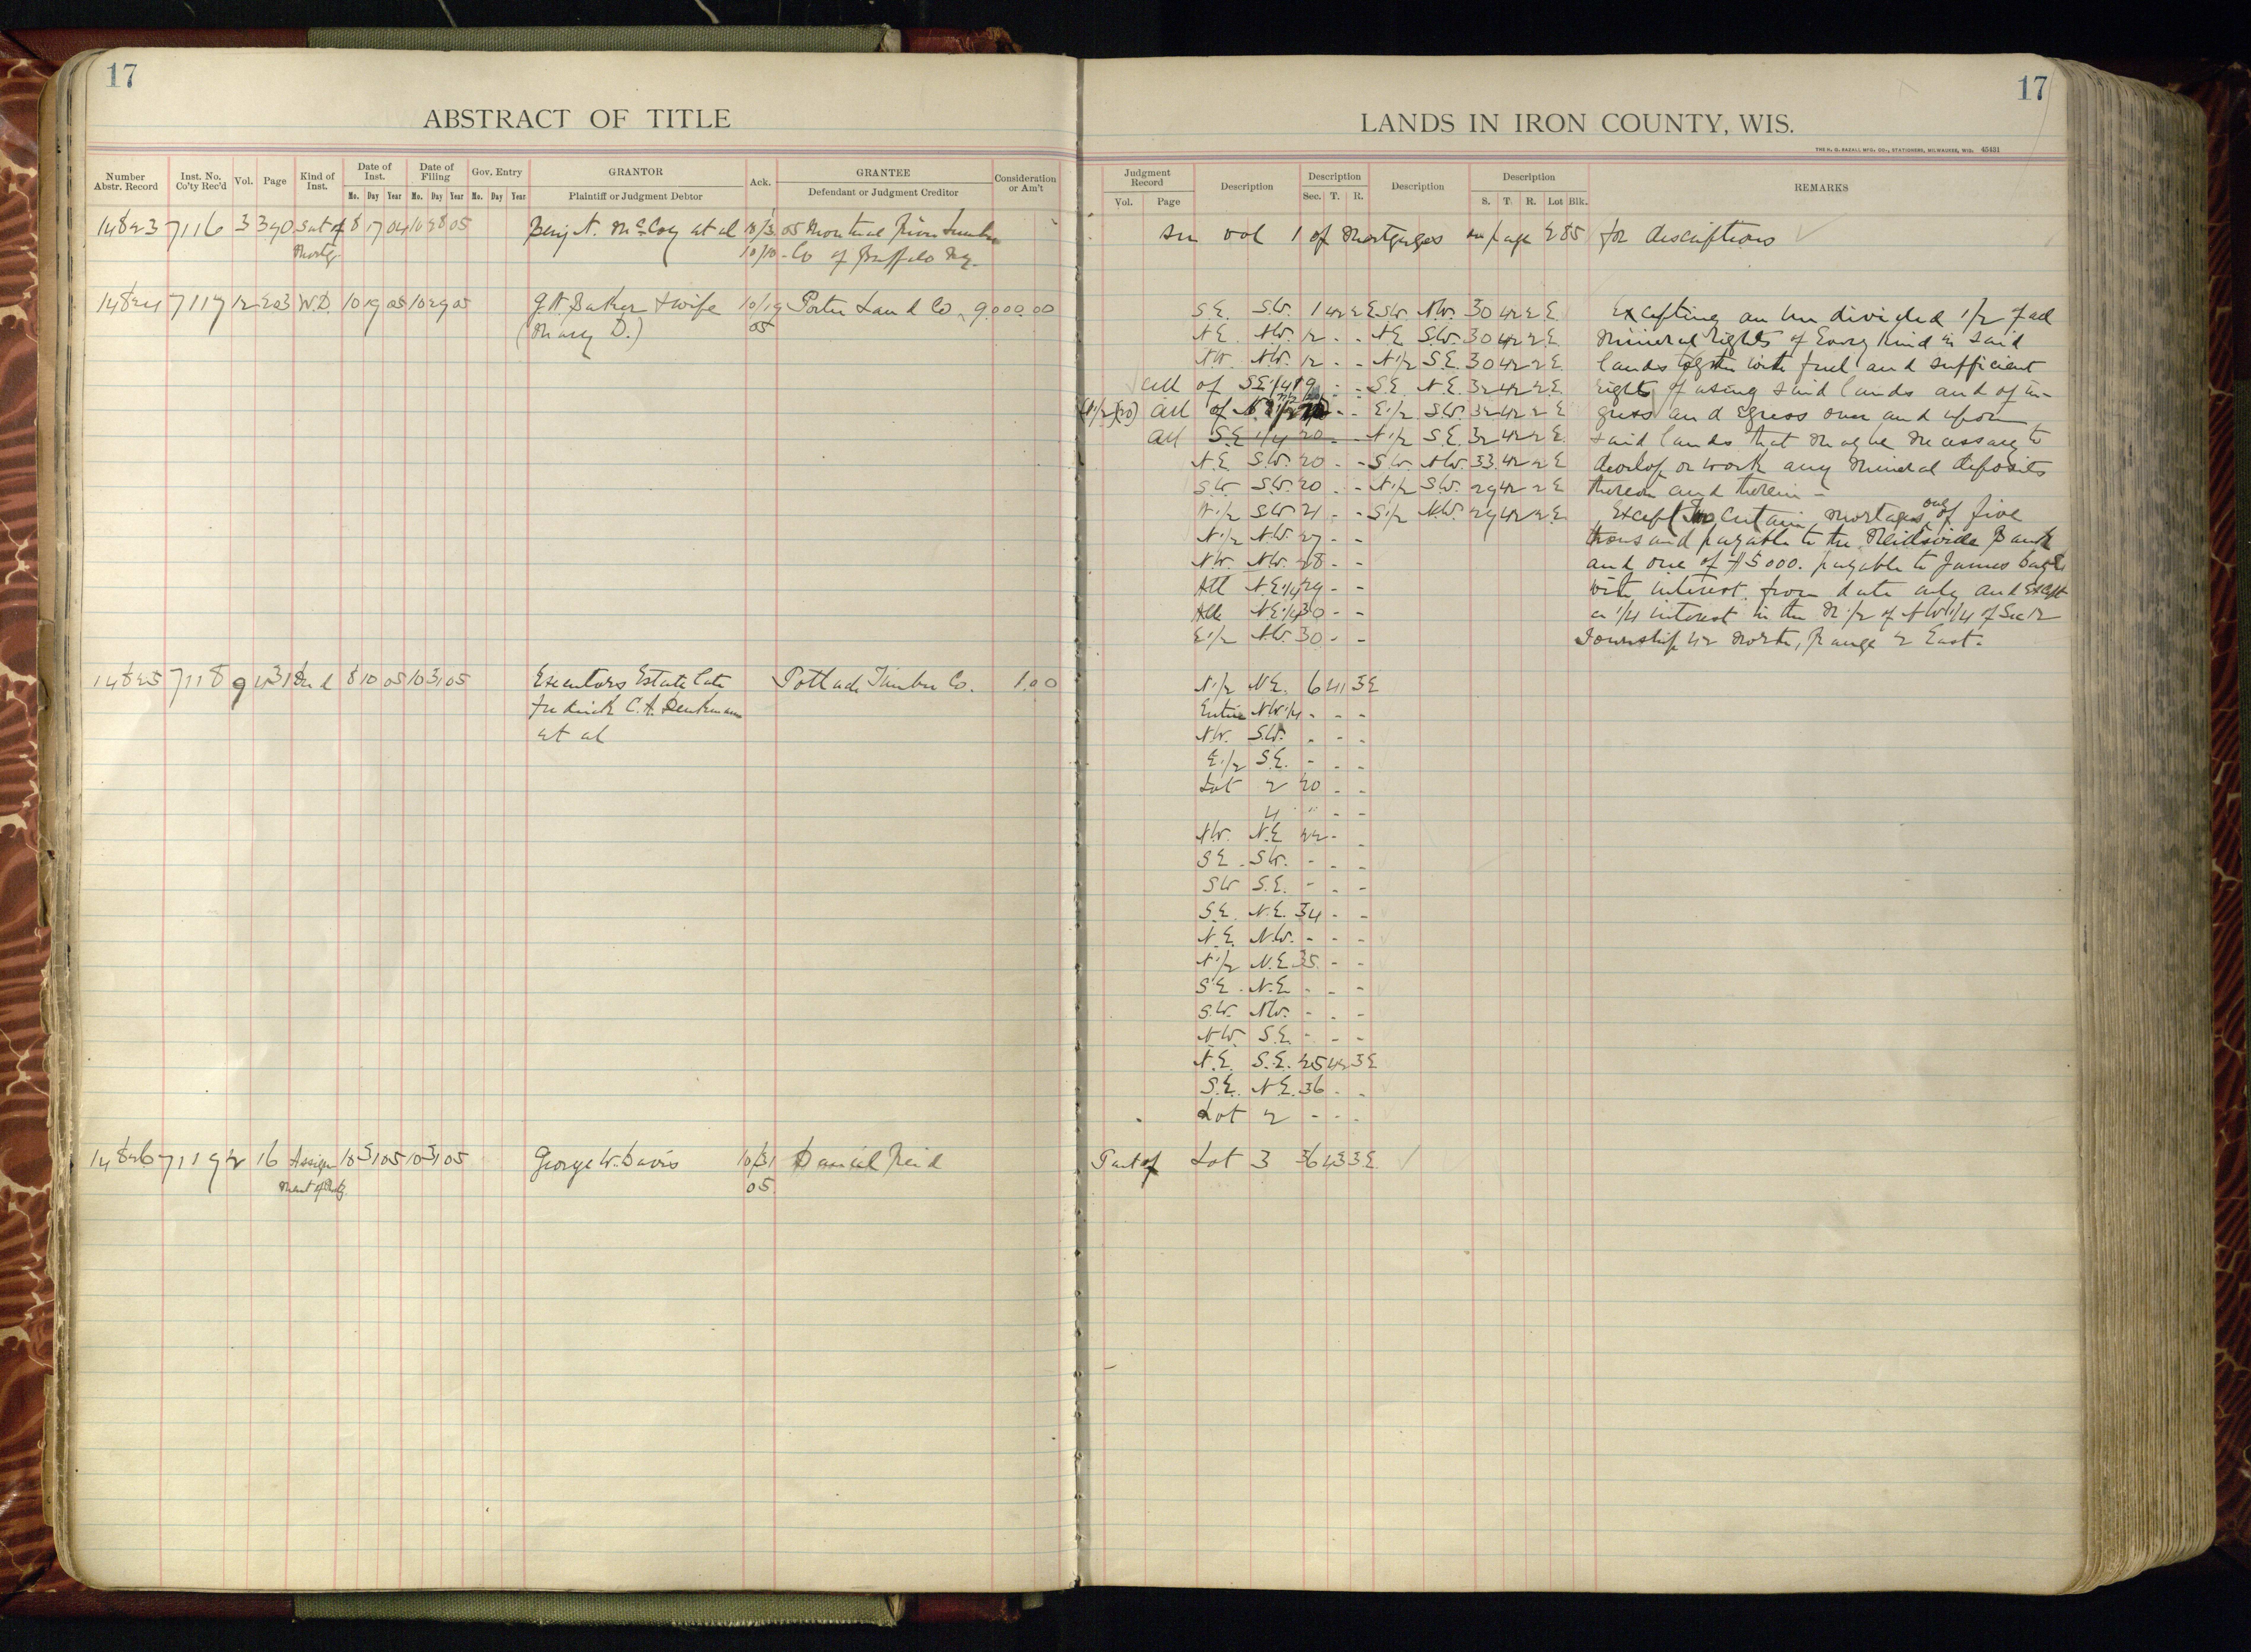 17
ABSTRACT OF TITLE
Number Abstr. Record
Inst. No. Co'ty Rec'd
Vol.
Page
Kind of Inst.
Date of Inst.
Mo. Day Year
Date of Filing
Mo. Day Year
Gov. Entry
Mo. Day Year
GRANTOR
Plaintiff or Judgment Debtor
Ack.
GRANTEE
Defendant or Judgment Creditor
Consideration or Am't
14823 7116 3 390 Sat of 8 17 04 10 28 05 Benj. N. McCoy et al 10/3 05 Montreal River Lumber
Mortg. 10/10 - Co of Buffalo N.Y.
14824 7117 12 203 W.D. 10 19 05 10 29 05 G.N. Baker & wife 10/19 Porter Land Co. 9,000.00
(Mary D.) 05
14825 7118 9 431 Deed 8 10 05 10 31 05 Executors Estate late Potlach Timber Co. 1.00
Fredrick C.A. Denkmann
et al
14826 7119 2 16 Assign 10 31 05 10 31 05 George W. Davis 10/31 Daniel Reid
ment of Mtg. 05
17
LANDS IN IRON COUNTY, WIS.
THE H. G. RAZALL MFG. CO., STATIONERS, MILWAUKEE, WIS. 45431
Judgment Record
Vol. Page
Description
Description
Sec. T. R.
Description
Description
S. T. R. Lot Blk.
REMARKS
See vol 1 of Mortgages on page 285 for descriptions
S.E. S.W. 1 42 2 E S.W. N.W. 30 42 2 E. Excepting an undivided 1/2 of all
N.E. N.W. 12 - - N.E. S.W. 30 42 2 E. mineral rights of Every kind in said
N.W. N.W. 12 - - N.1/2 S.E. 30 42 2 E. lands together with fuel and sufficient
all of S.E.1/4 19 - - S.E. N.E. 32 42 2 E. rights of using said lands and of in-
(20) All of N. - - E.1/2 S.W. 32 42 2 E gress and egress over and upon
all S.E 1/4 20 - - N.1/2 S.E. 32 42 2 E. said lands that may be necessary to
N.E. S.W. 20 - - S.W. N.W. 33 42 2 E develop or work any mineral deposits
S.W. S.W. 20 - - N.1/2 S.W. 29 42 2 E thereon and therein -
S.W. 21 - - S.1/2 N.W. 29 42 2 E. Except two certain mortages, one of five
N.1/2 N.W. 27 - - thousand payable to the Neillsville Bank
N.W. N.W. 28 - - and one of $5000. payable to James
All N.E.1/4 29 - - with interest from date only and Except
All N.E.1/4 30 - - a 1/4 interest in the N.1/2 of N.W.1/4 of Sec 12
E.1/2 N.W. 30 - - Township 42 North, Range 2 East.
N.1/2 N.E. 6 41 3E
Entire N.W.1/4 - - -
N.W. S.W. - - -
E.1/2 S.E. - - -
Lot 2 20 - -
4 " - -
N.W. N.E 22 - -
S.E. S.W. - - -
S.W S.E. - - -
S.E. N.E. 34 - -
N.E. N.W. - - -
N.1/2 N.E 35 - -
S.E. N.E - - -
S.W. N.W. - - -
N.W. S.E. - - -
N.E. S.E. 25 42 3E
S.E. N.E. 36 - -
Lot 2 - - -
Part of Lot 3 36 43 3E.